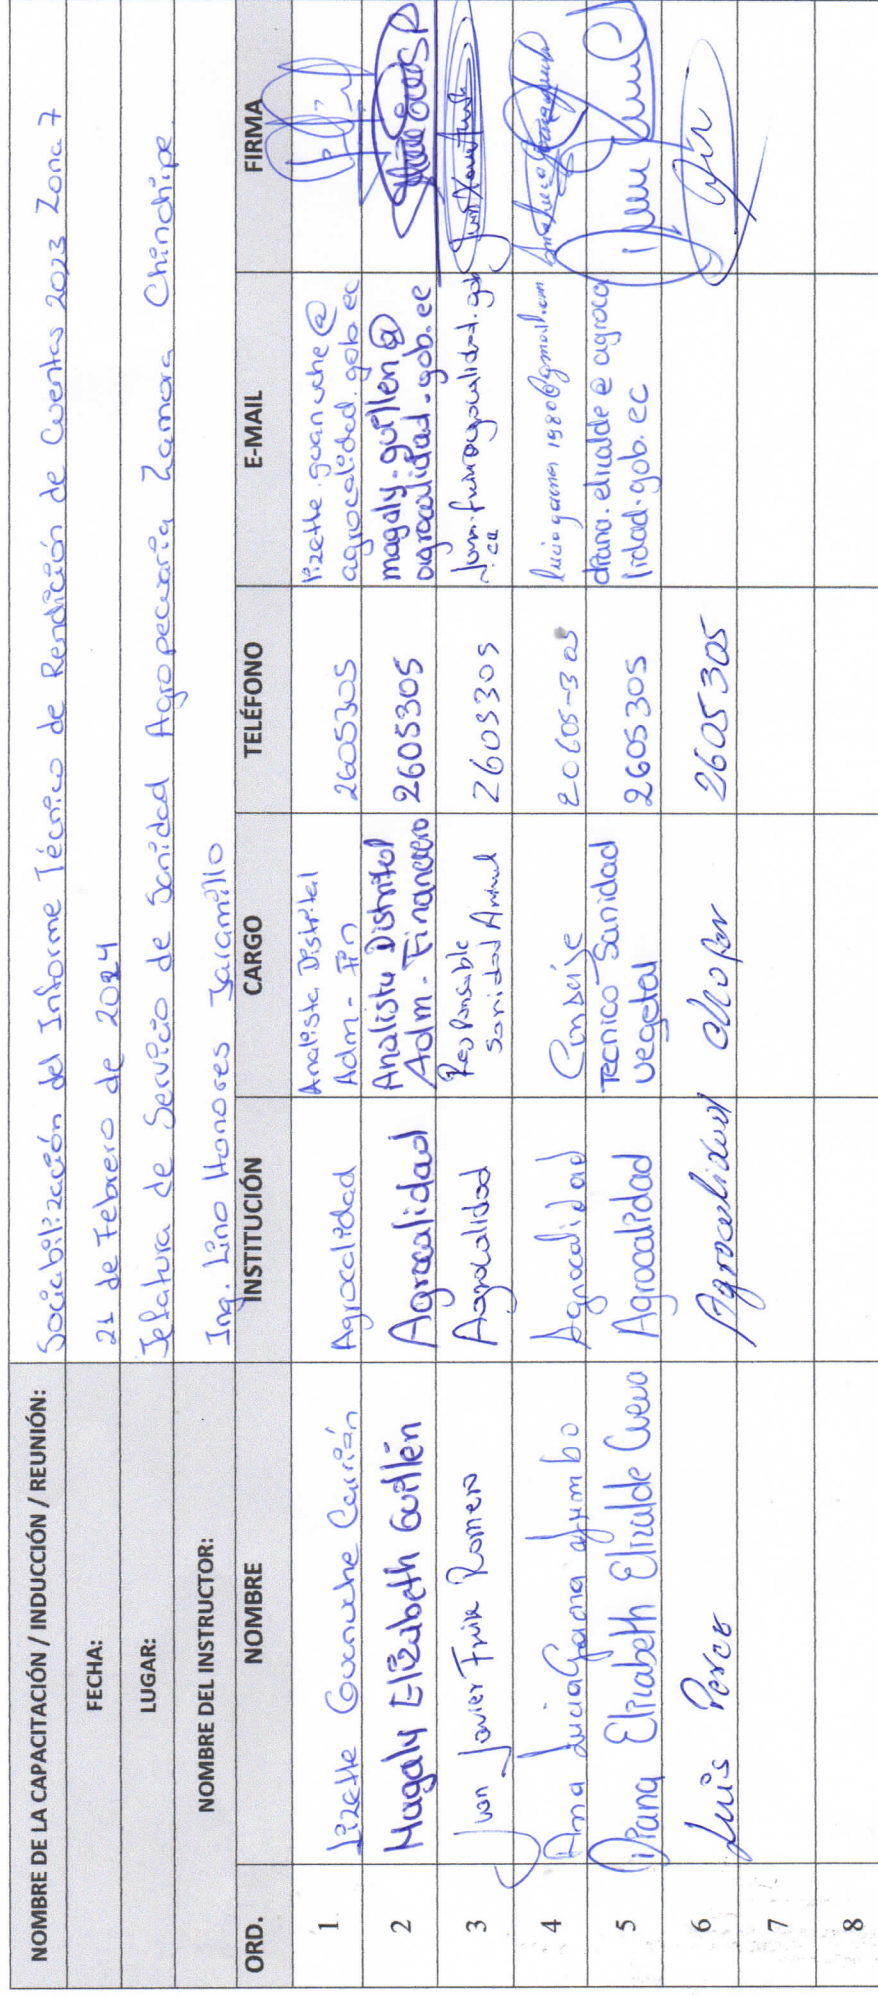 NOMBRE DE LA CAPACITACIÓN / INDUCCIÓN / REUNIÓN: Sociabilización del Informe Técnico de Rendición de Cuentas 2023 Zona 7
FECHA: 21 de Febrero de 2024
LUGAR: Jefatura de Servicio de Sanidad Agropecuaria Zamora Chinchipe.
NOMBRE DEL INSTRUCTOR: Ing. Lino Honores Jaramillo
ORD. NOMBRE INSTITUCIÓN CARGO TELÉFONO E-MAIL FIRMA
1 Lizethe Guanuche Carrión Agrocalidad Analista Distrital Adm - Fin 2605305 lizethe.guanuche@agrocalidad.gob.ec
2 Magaly Elizabeth Guillén Agrocalidad Analista Distrital Adm - Financiero 2605305 magaly.guillen@agrocalidad.gob.ec
3 Juan Javier Romero Agrocalidad Responsable Sanidad Animal 2605305
4 Ana Lucia Gaona Agrocalidad Conserje 20605-305
5 Diana Elizabeth Elizalde Cueva Agrocalidad Tecnico Sanidad Vegetal 2605305 diana.elizalde@agrocalidad.gob.ec
6 Luis Perez Agrocalidad chofer 2605305
7
8